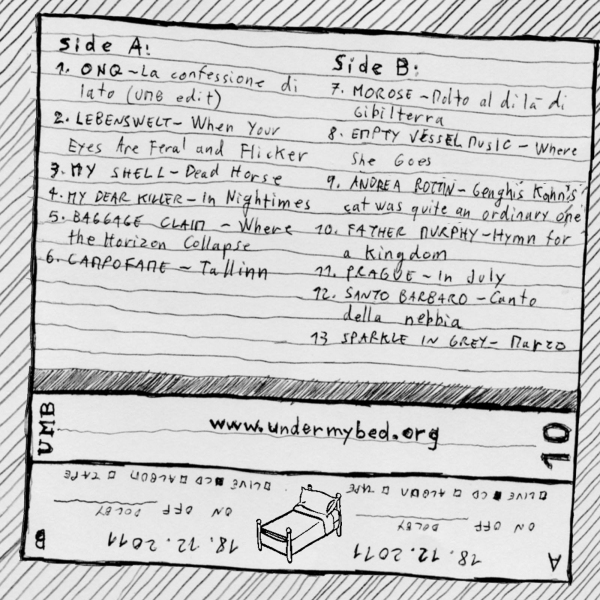 Side A:
1. ONQ - La confessione di
lato (UMB edit)
2. LEBENSWELT - When Your
Eyes Are Feral and Flicker
3. MY SHELL - Dead Horse
4. MY DEAR KILLER - In Nightimes
5. BAGGAGE CLAIM - Where
the Horizon Collapse
6. CAMPOFAME - Tallinn
Side B:
7. MOROSE - Molto al di là di
Gibilterra
8. EMPTY VESSEL MUSIC - Where
She Goes
9. ANDREA ROTTIN - Genghis Kahn's
cat was quite an ordinary one
10. FATHER MURPHY - Hymn for
a kingdom
11. PRAGUE - In July
12. SANTO BARBARO - Canto
della nebbia
13 SPARKLE IN GREY - Marzo
UMB
www.undermybed.org
10
A
18.12.2011
DOLBY ON OFF
LIVE CD ALBUM TAPE
B
18.12.2011
DOLBY ON OFF
LIVE CD ALBUM TAPE